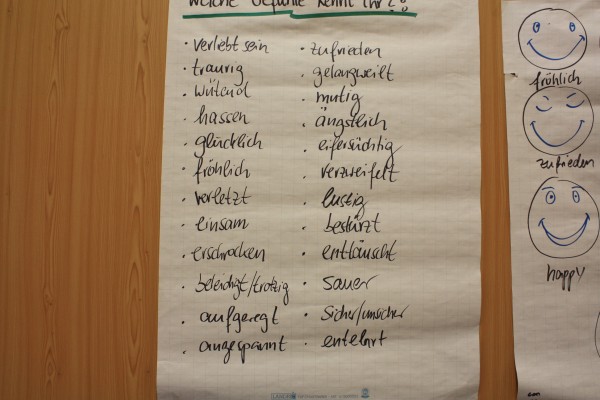 Welche Gefühle kennt ihr?!
· verlebt sein
· traurig
· wütend
· hassen
· glücklich
· fröhlich
· verletzt
· einsam
· erschrocken
· beleidigt/trotzig
· aufgeregt
· angespannt
· zufrieden
· gelangweilt
· mutig
· ängstlich
· eifersüchtig
· verzweifelt
· lustig
· bestürzt
· enttäuscht
· sauer
· sicher/unsicher
· entehrt
fröhlich
zufrieden
happy